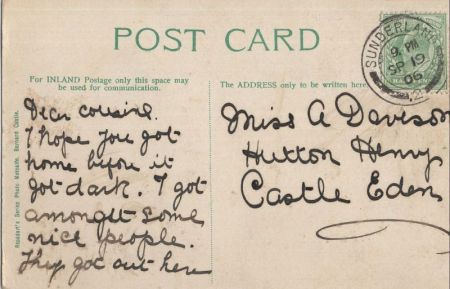 POST CARD
For INLAND Postage only this space may
be used for communication.
The ADDRESS only to be written here
SUNDERLAND
9 PM
SP 19
06
2
Dear cousine.
I hope you got
home before it
got dark. I got
amongst some
nice people.
They got out here
Miss A Davison
Hutton Henry
Castle Eden
Barnard Castle.